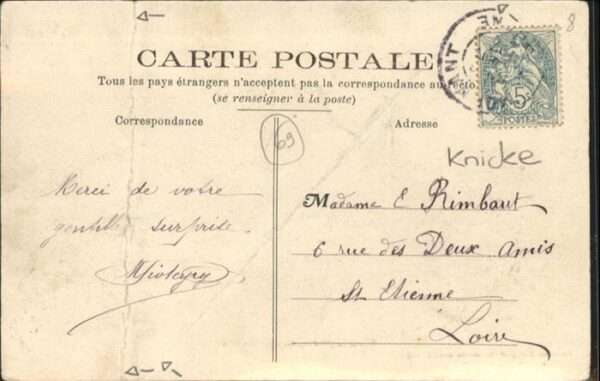 CARTE POSTALE
Tous les pays étrangers n'acceptent pas la correspondance au recto
(se renseigner à la poste)
Correspondance
Adresse
8
5c
POSTES
69
Knicke
Merci de votre
gentille surprise.
Madame E Rimbaut
6 rue des Deux Amis
St Etienne
Loire